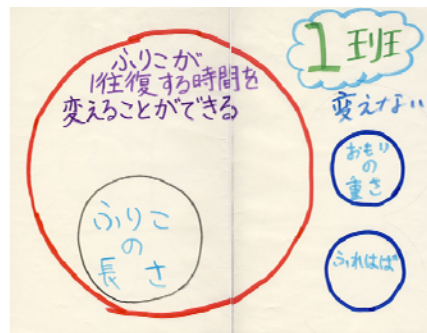 ふりこが
1往復する時間を
変えることができる
ふりこ
の
長さ
1班
変えない
おもり
の
重さ
ふれはば